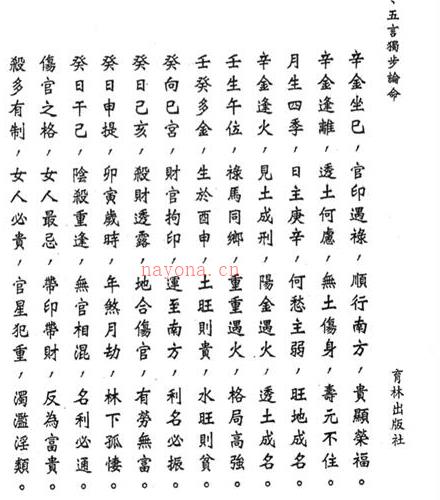 、五言獨步論命
育林出版社
辛金坐巳，官印遇祿，順行南方，貴顯榮福。
辛金逢離，透土何慮，無土傷身，壽元不住。
月生四季，日主庚辛，何愁主弱，旺地成名。
辛金逢火，見土成刑，陽金遇火，透土成名。
壬生午位，祿馬同鄉，重重遇火，格局高強。
壬癸多金，生於酉申，土旺則貴，水旺則貧。
癸向巳宮，財官拘印，運至南方，利名必振。
癸日己亥，殺財透露，地合傷官，有勞無富。
癸日申提，卯寅歲時，年煞月劫，林下孤悽。
癸日干己，陰殺重逢，無官相混，名利必通。
傷官之格，女人最忌，帶印帶財，反為富貴。
殺多有制，女人必貴，官星犯重，濁濫淫類。
nayona.cn